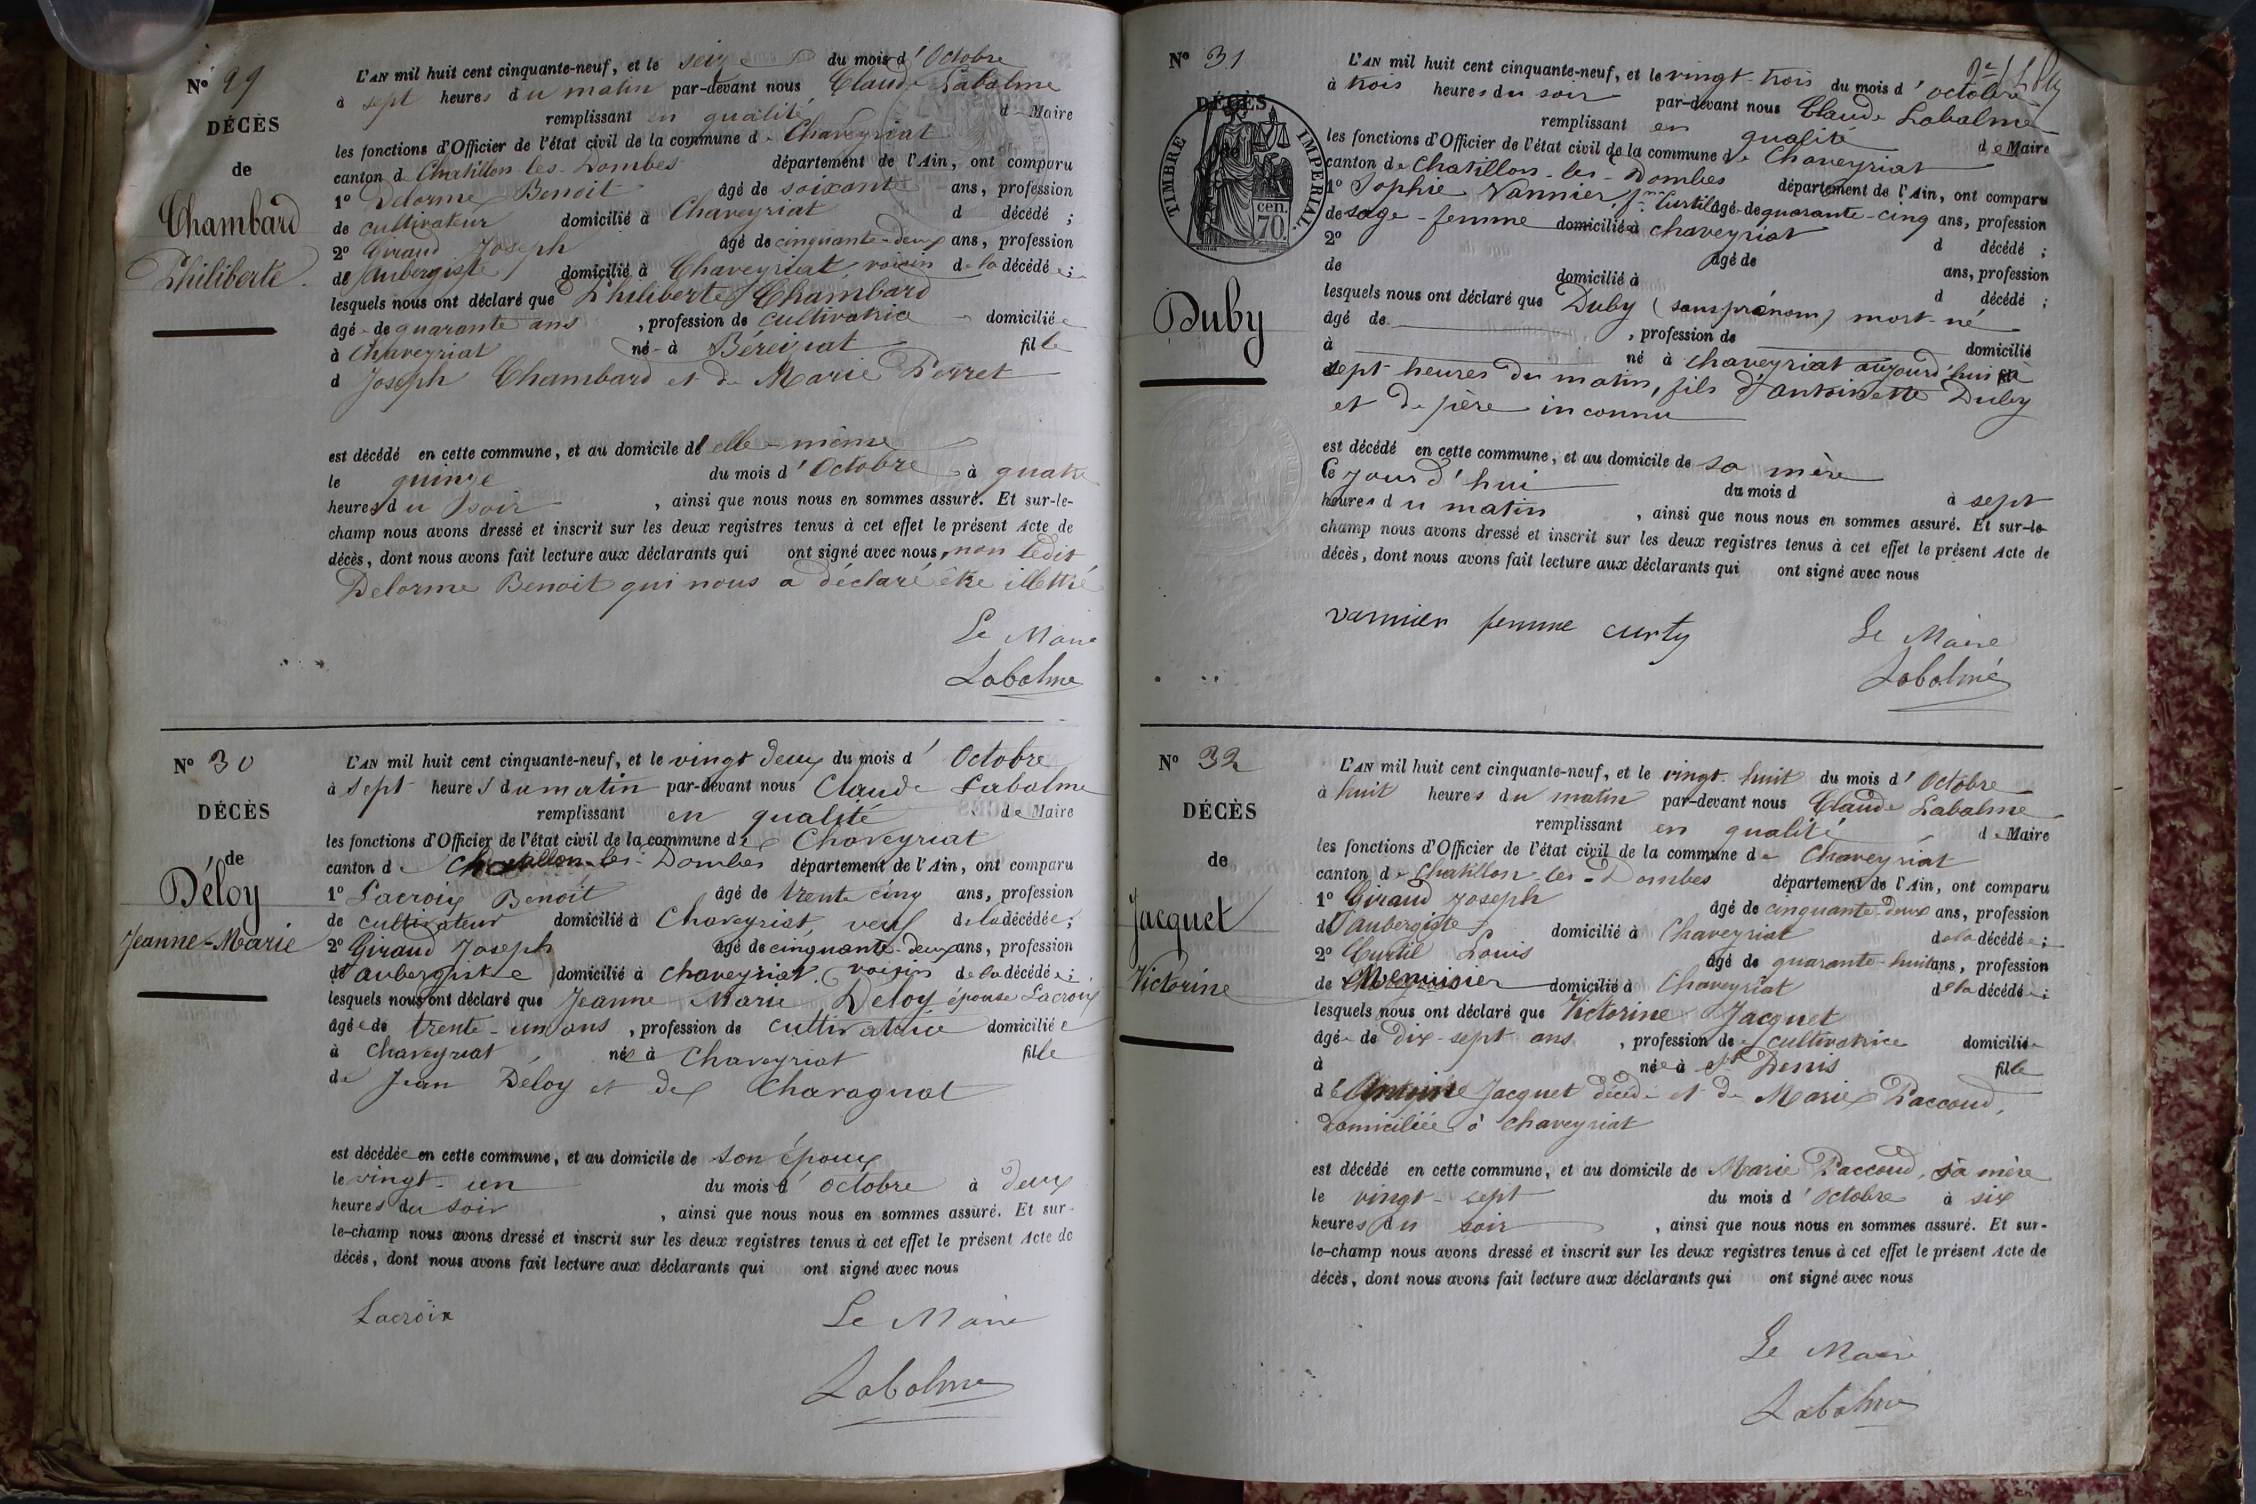 N° 29
DÉCÈS
de
Chambard
Philiberte
L'AN mil huit cent cinquante-neuf, et le seize du mois d'Octobre
à sept heures du matin par-devant nous Claude Labalme
remplissant en qualité de Maire
les fonctions d'Officier de l'état civil de la commune de Chaveyriat
canton de Chatillon-les-Dombes département de l'Ain, ont comparu
1° Delorme Benoit âgé de soixante ans, profession
de cultivateur domicilié à Chaveyriat d décédé ;
2° Giraud Joseph âgé de cinquante-deux ans, profession
de Aubergiste domicilié à Chaveyriat, voisin de la décédée ;
lesquels nous ont déclaré que Philiberte Chambard
âgée de quarante ans , profession de cultivatrice domiciliée
à Chaveyriat né à Béreiziat fille
d Joseph Chambard et de Marie Perret
est décédé en cette commune, et au domicile d'elle-même
le quinze du mois d'Octobre à quatre
heures du soir , ainsi que nous nous en sommes assuré. Et sur-le-
champ nous avons dressé et inscrit sur les deux registres tenus à cet effet le présent Acte de
décès, dont nous avons fait lecture aux déclarants qui ont signé avec nous, non ledit
Delorme Benoit qui nous a déclaré être illettré
Le Maire
Labalme
N° 30
DÉCÈS
de
Déloy
Jeanne-Marie
L'AN mil huit cent cinquante-neuf, et le vingt deux du mois d'Octobre
à sept heures du matin par-devant nous Claude Labalme
remplissant en qualité de Maire
les fonctions d'Officier de l'état civil de la commune de Chaveyriat
canton de Chatillon-les-Dombes département de l'Ain, ont comparu
1° Lacroix Benoit âgé de trente cinq ans, profession
de cultivateur domicilié à Chaveyriat, veuf de la décédée ;
2° Giraud Joseph âgé de cinquante-deux ans, profession
d'aubergiste domicilié à Chaveyriat, voisin de la décédée ;
lesquels nous ont déclaré que Jeanne Marie Deloy épouse Lacroix
âgée de trente-un ans , profession de cultivatrice domiciliée
à Chaveyriat née à Chaveyriat fille
de Jean Déloy et de Charagnat
est décédée en cette commune, et au domicile de son époux
le vingt-un du mois d'octobre à deux
heures du soir , ainsi que nous nous en sommes assuré. Et sur-
le-champ nous avons dressé et inscrit sur les deux registres tenus à cet effet le présent Acte de
décès, dont nous avons fait lecture aux déclarants qui ont signé avec nous
Lacroix Le Maire
Labalme
N° 31
DÉCÈS
TIMBRE IMPERIAL
70 cen.
Duby
L'AN mil huit cent cinquante-neuf, et le vingt-trois du mois d'octobre
à trois heures du soir par-devant nous Claude Labalme
remplissant en qualité de Maire
les fonctions d'Officier de l'état civil de la commune de Chaveyriat
canton de Chatillon-les-Dombes département de l'Ain, ont comparu
1° Sophie Vannier, fme Curtil âgé de quarante-cinq ans, profession
de sage-femme domicilié à Chaveyriat d décédé ;
2° âgé de ans, profession
de domicilié à d décédé ;
lesquels nous ont déclaré que Duby (sans prénom) mort-né
âgé de , profession de domicilié
à né à Chaveyriat aujourd'hui
sept heures du matin, fils d'antoinette Duby
et de père inconnu
est décédé en cette commune, et au domicile de sa mère
le jourd'hui du mois d à sept
heures du matin , ainsi que nous nous en sommes assuré. Et sur-le-
champ nous avons dressé et inscrit sur les deux registres tenus à cet effet le présent Acte de
décès, dont nous avons fait lecture aux déclarants qui ont signé avec nous
vannier femme curty Le Maire
Labalme
N° 32
DÉCÈS
de
Jacquet
Victorine
L'AN mil huit cent cinquante-neuf, et le vingt-huit du mois d'Octobre
à huit heures du matin par-devant nous Claude Labalme
remplissant en qualité de Maire
les fonctions d'Officier de l'état civil de la commune de Chaveyriat
canton de Chatillon-les-Dombes département de l'Ain, ont comparu
1° Giraud Joseph âgé de cinquante-deux ans, profession
d'aubergiste domicilié à Chaveyriat de la décédée ;
2° Curtil Louis âgé de quarante-huit ans, profession
de Menuisier domicilié à Chaveyriat de la décédée ;
lesquels nous ont déclaré que Victorine Jacquet
âgée de dix-sept ans , profession de cultivatrice domiciliée
à née à St Denis fille
d Antoine Jacquet décédé et de Marie Paccoud,
domiciliée à Chaveyriat
est décédé en cette commune, et au domicile de Marie Paccoud, sa mère
le vingt-sept du mois d'Octobre à six
heures du soir , ainsi que nous nous en sommes assuré. Et sur-
le-champ nous avons dressé et inscrit sur les deux registres tenus à cet effet le présent Acte de
décès, dont nous avons fait lecture aux déclarants qui ont signé avec nous
Le Maire
Labalme